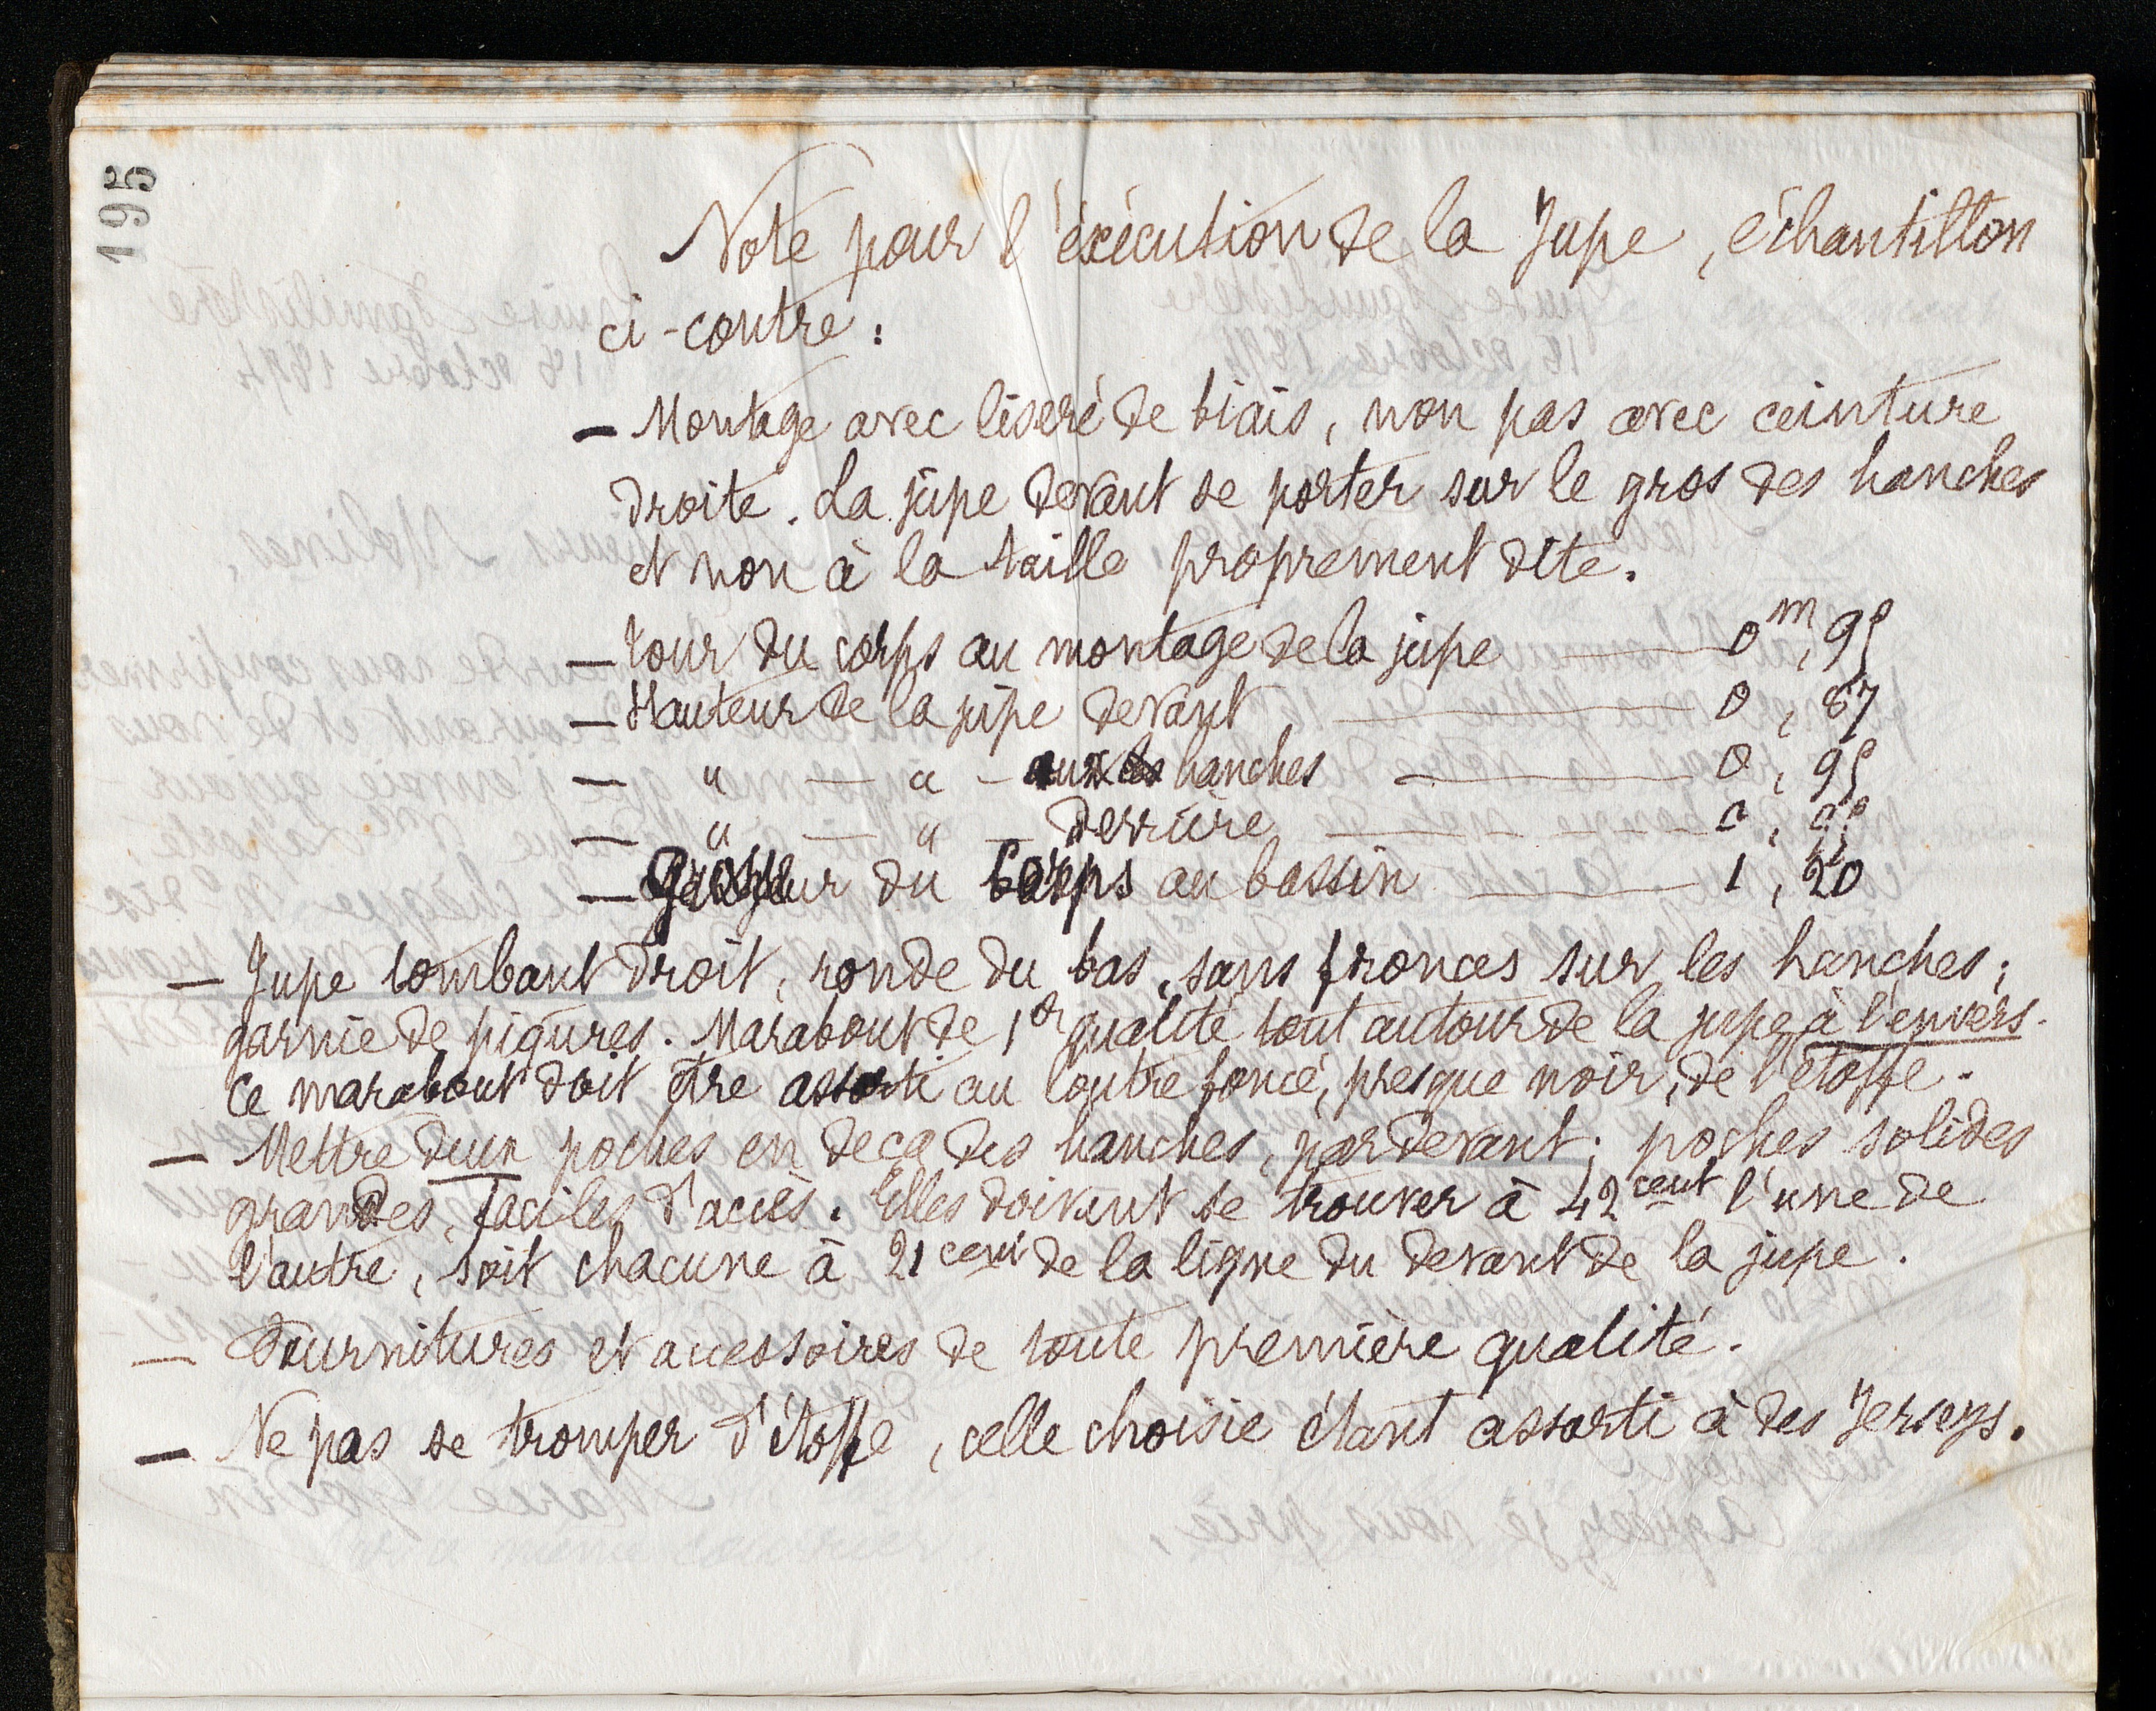 195
Note pour l'éxécution de la Jupe, échantillon
ci-contre :
— Montage avec liseré de biais, non pas avec ceinture
droite. La jupe devant se porter sur le gros des hanches
et non à la taille proprement dite.
— Tour du corps au montage de la jupe — 0m,95
— Hauteur de la jupe devant — 0, 87
— " — " — aux hanches — 0, 95
— " — " — derrière — 0,
— du Corps au bassin — 1, 20
— Jupe tombant droit, ronde du bas, sans fronces sur les hanches;
garnie de piqures. Marabout de 1er qualité tout autour de la jupe, à l'envers.
Ce marabout doit être assorti au loutre foncé, presque noir, de l'étoffe.
— Mettre deux poches en deça des hanches, par devant; poches solides
grandes, faciles d'accès. Elles doivent se trouver à 42 cent l'une de
l'autre, soit chacune à 21 cent de la ligne du devant de la jupe.
— Fournitures et accessoires de toute première qualité.
— Ne pas se tromper d'étoffe, celle choisie étant assorti à des Jerseys.